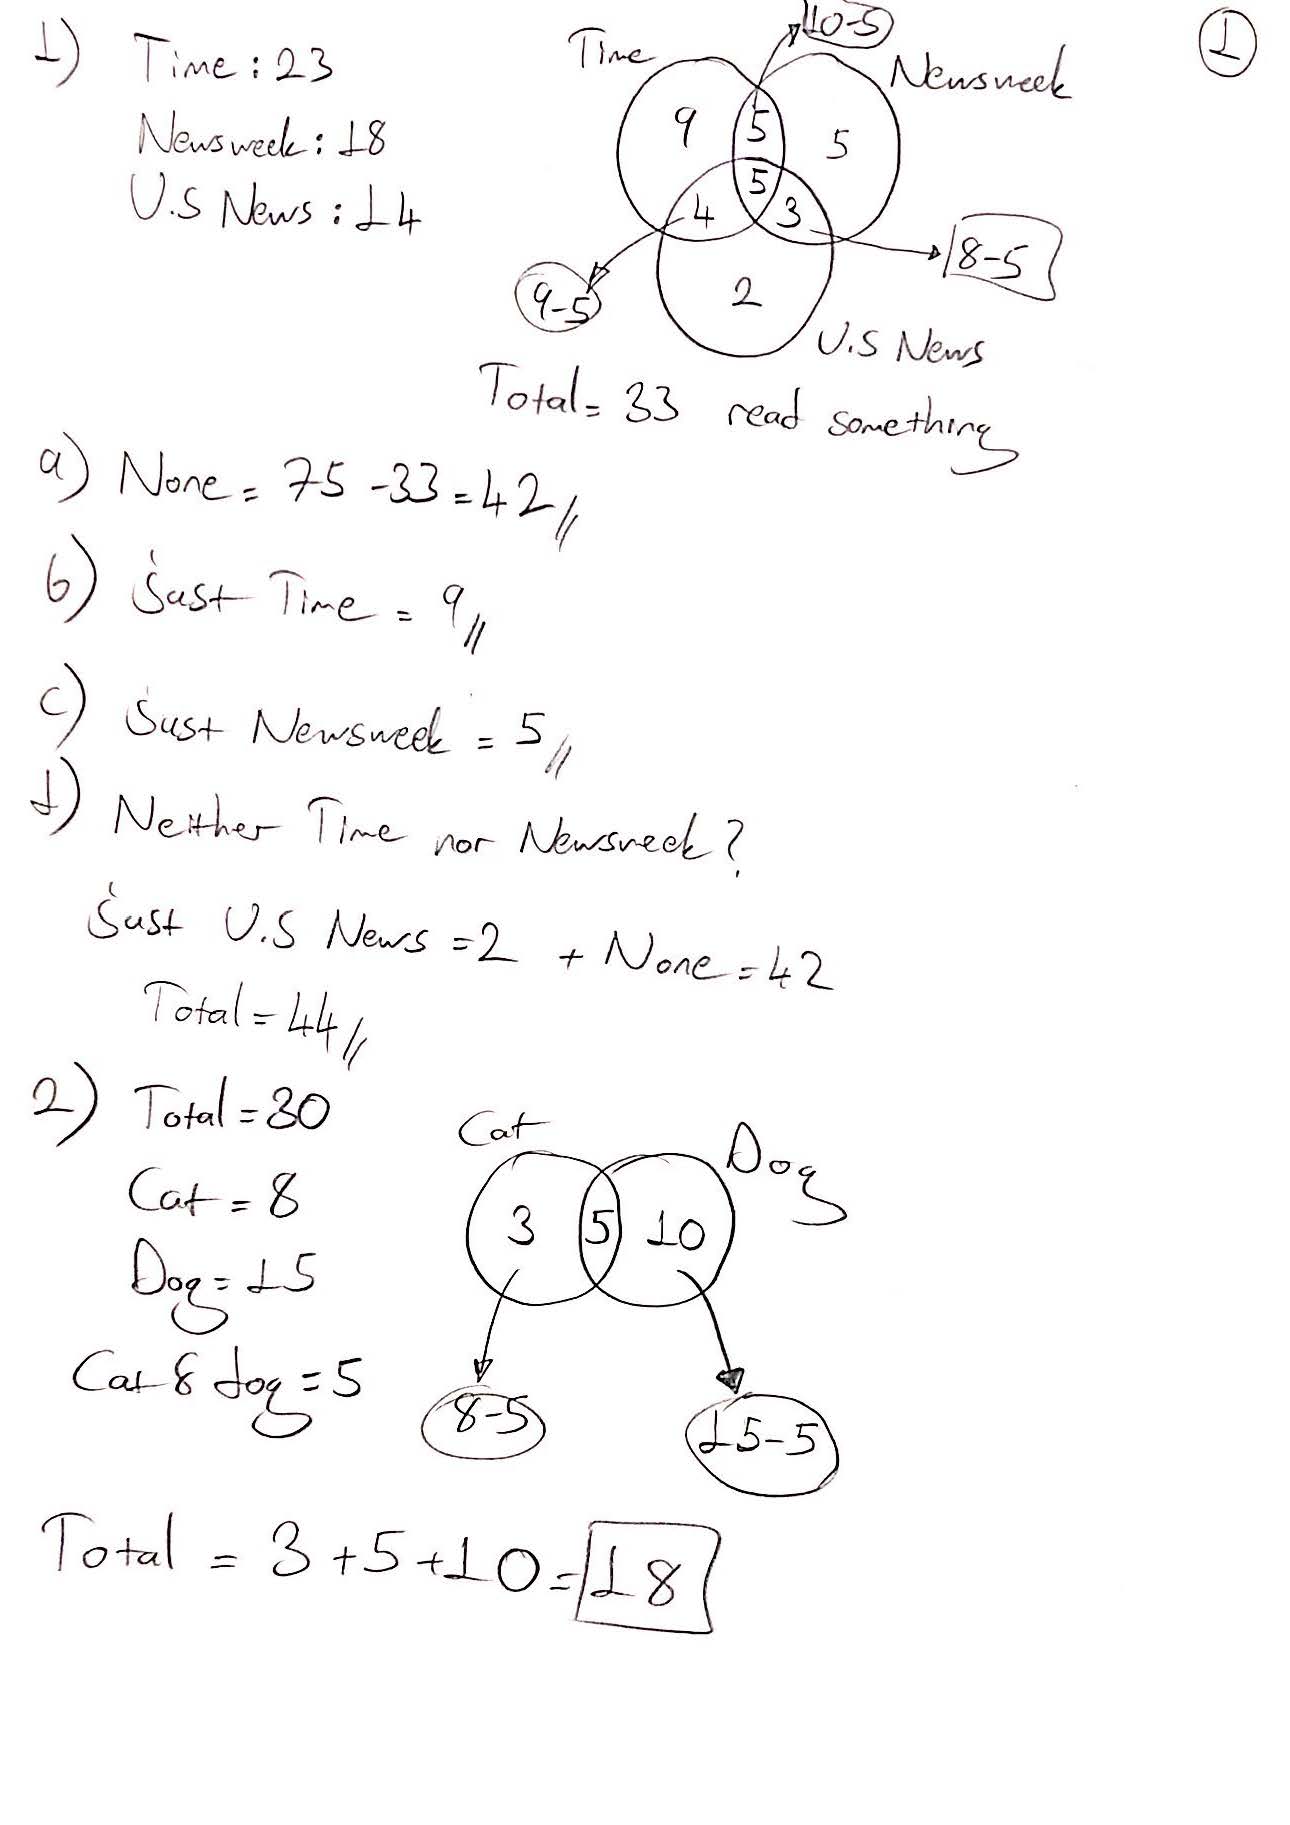 1
1) Time : 23
Newsweek : 18
U.S News : 14
Time
10-5
Newsweek
9
5
5
5
4
3
9-5
8-5
2
U.S News
Total = 33 read something
a) None = 75 - 33 = 42 //
b) Just Time = 9 //
c) Just Newsweek = 5 //
d) Neither Time nor Newsweek?
Just U.S News = 2 + None = 42
Total = 44 //
2) Total = 30
Cat = 8
Dog = 15
Cat & dog = 5
Cat
Dog
3
5
10
8-5
15-5
Total = 3 + 5 + 10 = 18